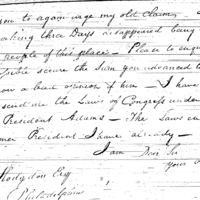 you to again urge my old claim
waiting three Days is supposed being
people of this place – Please to enquire
secure the Sum you advanced to
him – I have
send me the Laws of Congress under
President Adams – The Laws en
mer President I have already –
I am Dear Sir
your
Hodgdon Esq
Philadelphia